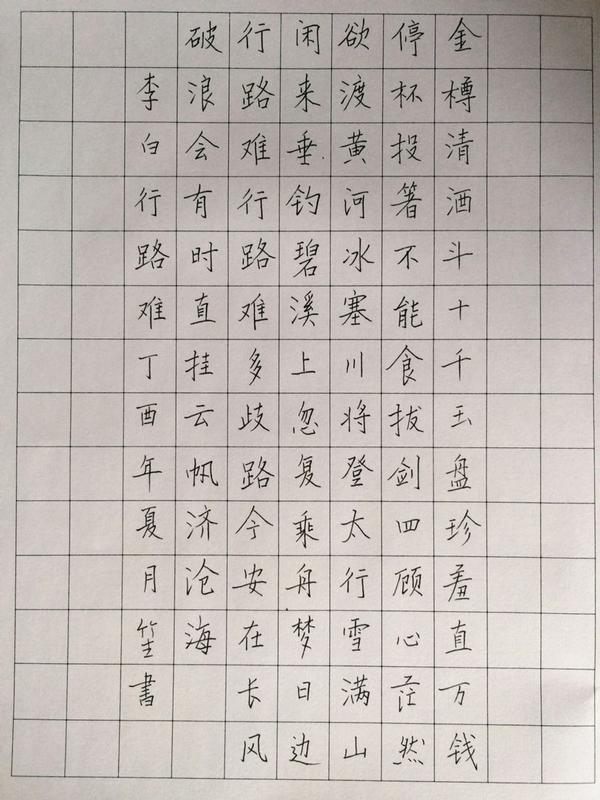 金樽清酒斗十千玉盘珍羞直万钱
停杯投箸不能食拔剑四顾心茫然
欲渡黄河冰塞川将登太行雪满山
闲来垂钓碧溪上忽复乘舟梦日边
行路难行路难多歧路今安在长风
破浪会有时直挂云帆济沧海
李白行路难丁酉年夏月笙書